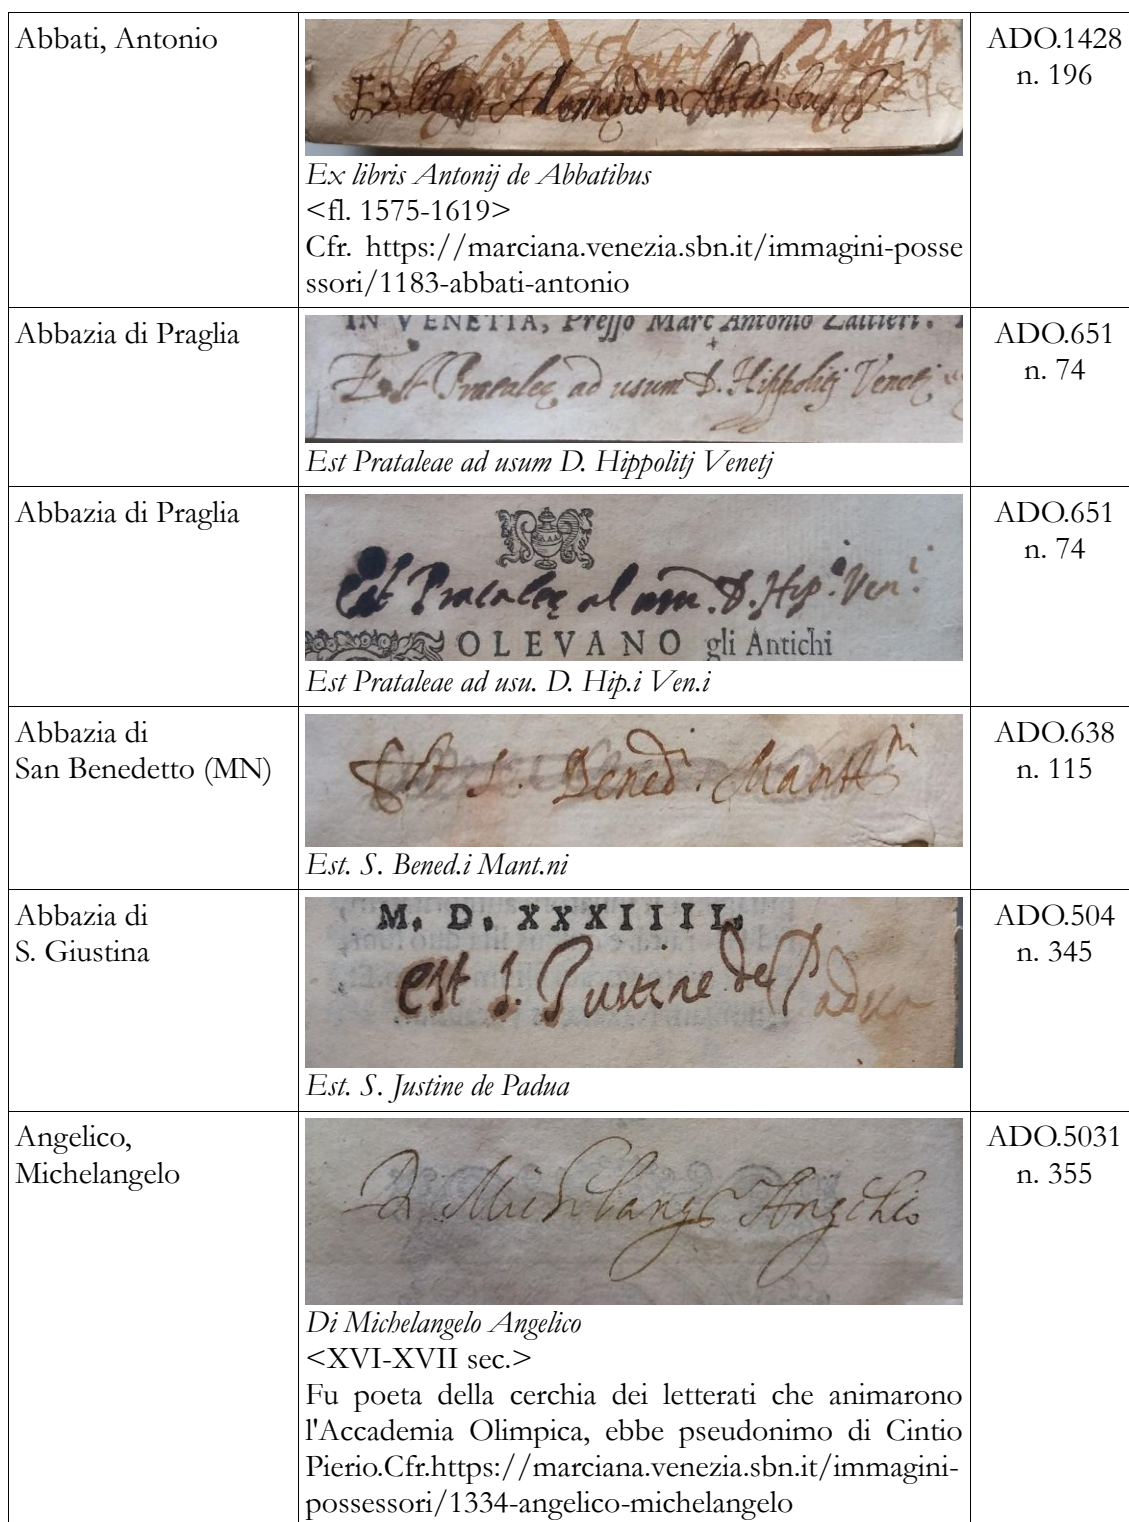 Abbati, Antonio
ADO.1428
n. 196
Ex libris Antonij de Abbatibus
<fl. 1575-1619>
Cfr. https://marciana.venezia.sbn.it/immagini-posse
ssori/1183-abbati-antonio
Abbazia di Praglia
IN VENETIA, Presso Marc Antonio Zaltieri.
Est Pratalee ad usum D. Hippolitj Venetj
ADO.651
n. 74
Est Prataleae ad usum D. Hippolitj Venetj
Abbazia di Praglia
Est Pratalee ad usu. D. Hip.i Ven.i
OLEVANO gli Antichi
ADO.651
n. 74
Est Prataleae ad usu. D. Hip.i Ven.i
Abbazia di
San Benedetto (MN)
Est S. Bened.i Mant.ni
ADO.638
n. 115
Est. S. Bened.i Mant.ni
Abbazia di
S. Giustina
M. D. XXXIIII.
est s. Justine de Padua
ADO.504
n. 345
Est. S. Justine de Padua
Angelico,
Michelangelo
Di Michelangelo Angelico
ADO.5031
n. 355
Di Michelangelo Angelico
<XVI-XVII sec.>
Fu poeta della cerchia dei letterati che animarono
l'Accademia Olimpica, ebbe pseudonimo di Cintio
Pierio.Cfr.https://marciana.venezia.sbn.it/immagini-
possessori/1334-angelico-michelangelo